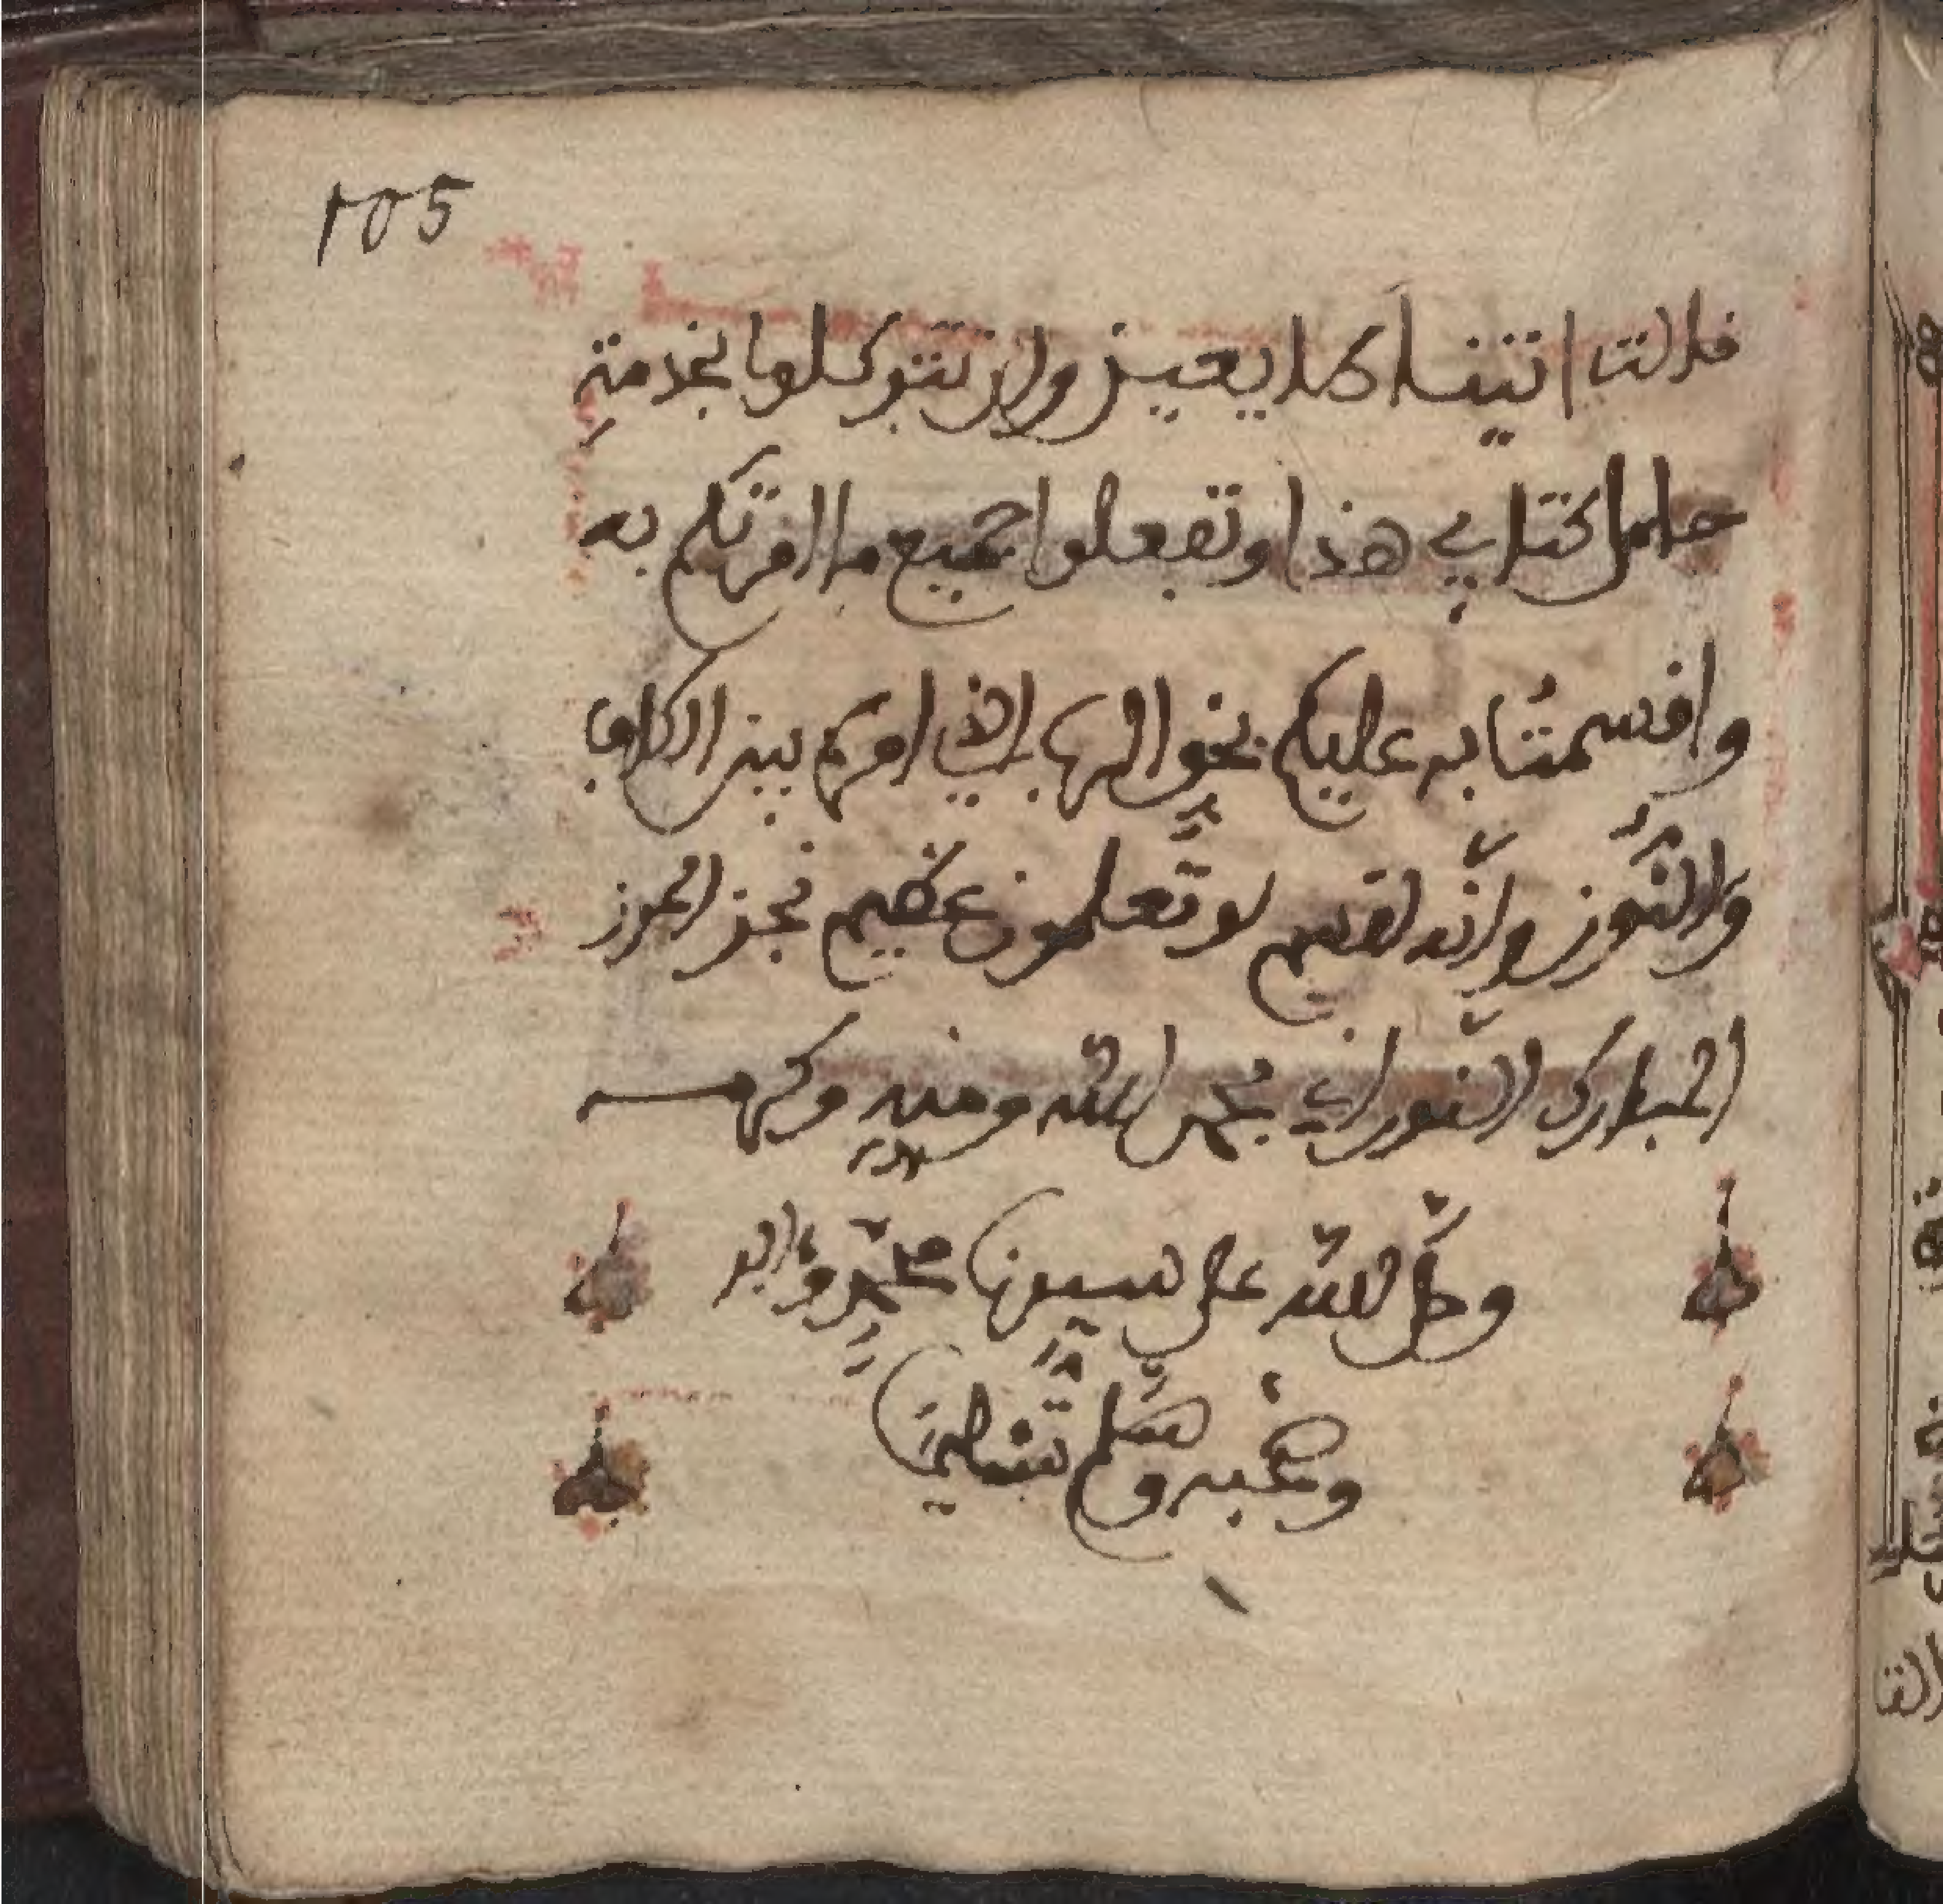 105
قالتا اتينا طايعين وان تتوكلوا بخدمة
حامل كتابي هذا وتفعلوا جميع ما امرتكم به
واقسمت به عليكم بحق الذي امره بين الكاف
والنُّون وانّه لقسم لو تعلمون عظيم نجز الحرز
المبارك النوراني بحمد الله ومنه وكرمه
وصلّى اللّه على سيدنا محمّد وءاله
وصحبه وسلّم تسليما